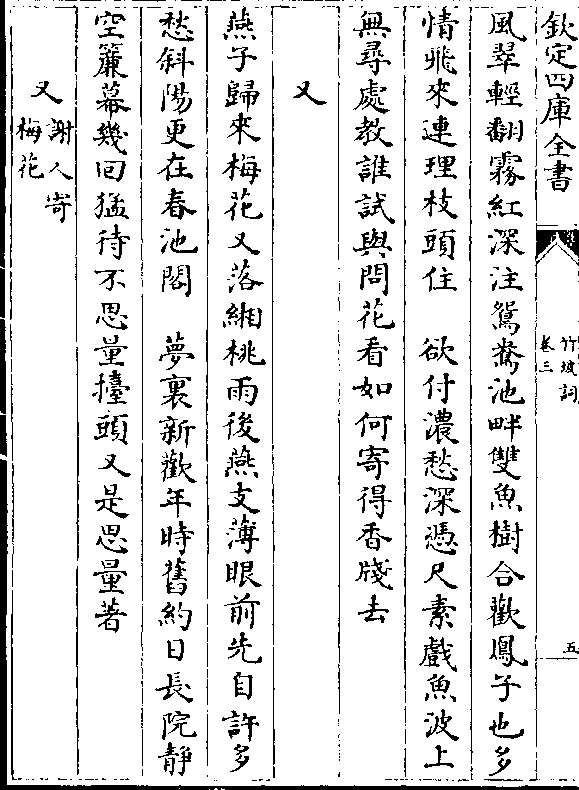 欽定四庫全書
竹坡詞
卷三
五
風翠輕翻霧紅深注鴛鴦池畔雙魚樹合歡鳳子也多
情飛來連理枝頭住　欲付濃愁深憑尺素戲魚波上
無尋處教誰試與問花看如何寄得香牋去
又
燕子歸來梅花又落緗桃雨後燕支薄眼前先自許多
愁斜陽更在春池閣　夢裏新歡年時舊約日長院靜
空簾幕幾回猛待不思量擡頭又是思量著
又謝人寄
梅花